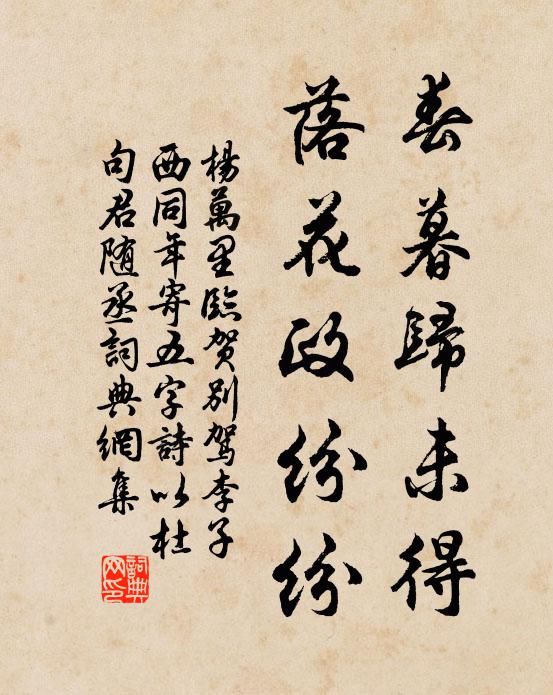 春暮歸未得
落花政紛紛
楊萬里臨賀別駕李子
西同年寄五字詩以杜
句君随丞詞典網集
詞典
网印